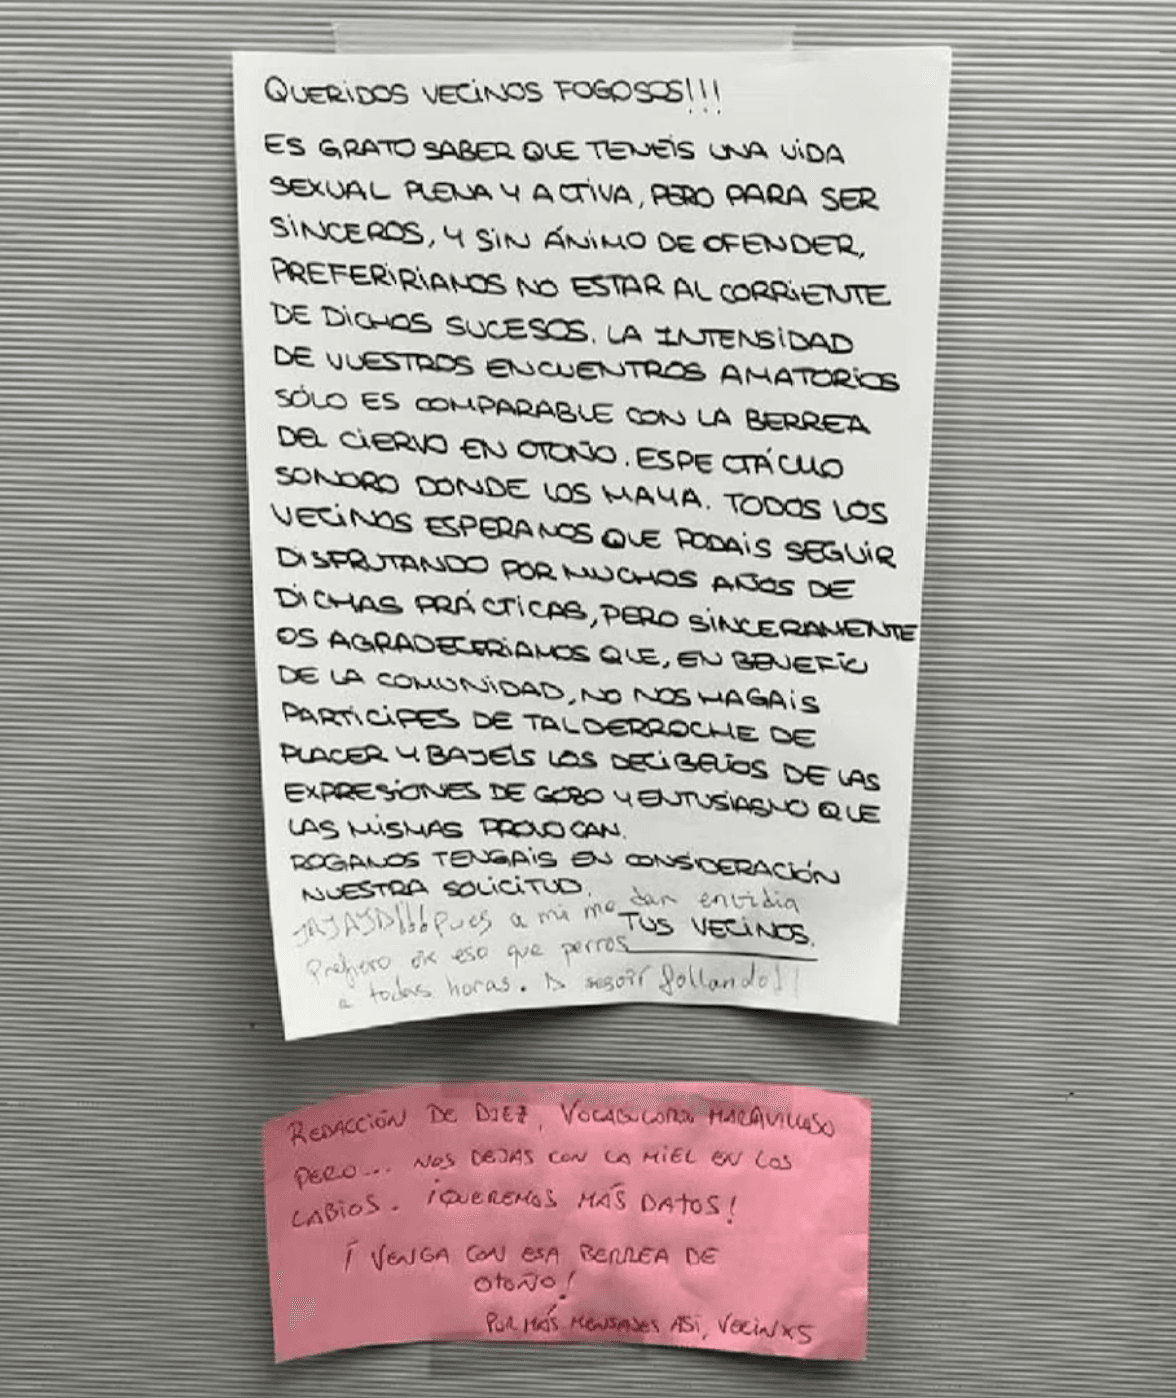 QUERIDOS VECINOS FOGOSOS!!!
ES GRATO SABER QUE TENÉIS UNA VIDA
SEXUAL PLENA Y ACTIVA, PERO PARA SER
SINCEROS, Y SIN ÁNIMO DE OFENDER,
PREFERIRIAMOS NO ESTAR AL CORRIENTE
DE DICHOS SUCESOS. LA INTENSIDAD
DE VUESTROS ENCUENTROS AMATORIOS
SÓLO ES COMPARABLE CON LA BERREA
DEL CIERVO EN OTOÑO. ESPECTÁCULO
SONORO DONDE LOS HAYA. TODOS LOS
VECINOS ESPERAMOS QUE PODAIS SEGUIR
DISFRUTANDO POR MUCHOS AÑOS DE
DICHAS PRÁCTICAS, PERO SINCERAMENTE
OS AGRADECERIAMOS QUE, EN BENEFICIO
DE LA COMUNIDAD, NO NOS HAGAIS
PARTICIPES DE TAL DERROCHE DE
PLACER Y BAJEÍS LOS DECIBELIOS DE LAS
EXPRESIONES DE GOZO Y ENTUSIASMO QUE
LAS MISMAS PROVOCAN.
ROGAMOS TENGAIS EN CONSIDERACIÓN
NUESTRA SOLICITUD.
TUS VECINOS.
JAJAJA!!! Pues a mi me dan envidia
Prefiero oir eso que perros
a todas horas. A seguir follando!!
REDACCIÓN DE DIEZ, VOCABULARIO MARAVILLOSO
PERO... NOS DEJAS CON LA MIEL EN LOS
LABIOS. ¡QUEREMOS MÁS DATOS!
¡VENGA CON ESA BERREA DE
OTOÑO!
POR MÁS MENSAJES ASÍ, VECINXS